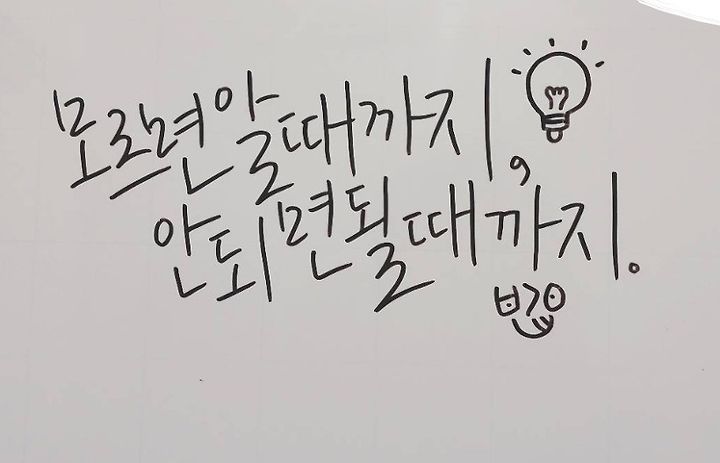 모르면알때까지,
안되면될때까지.